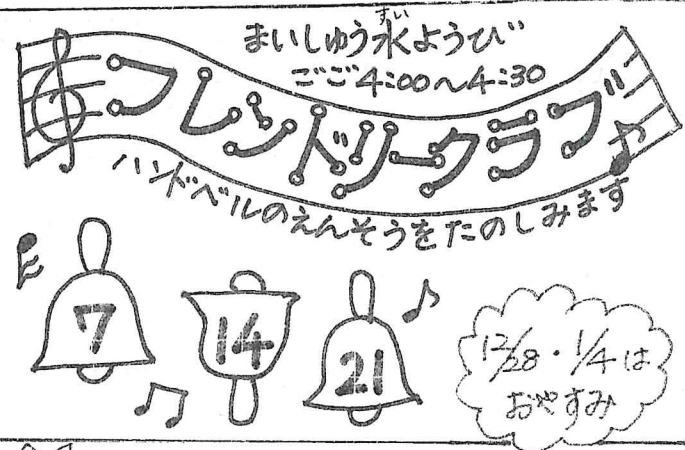 まいしゅう水ようび
すい
ごご4:00〜4:30
フレンドリークラブ
ハンドベルのえんそうをたのしみます
7
14
21
12/28・1/4は
おやすみ